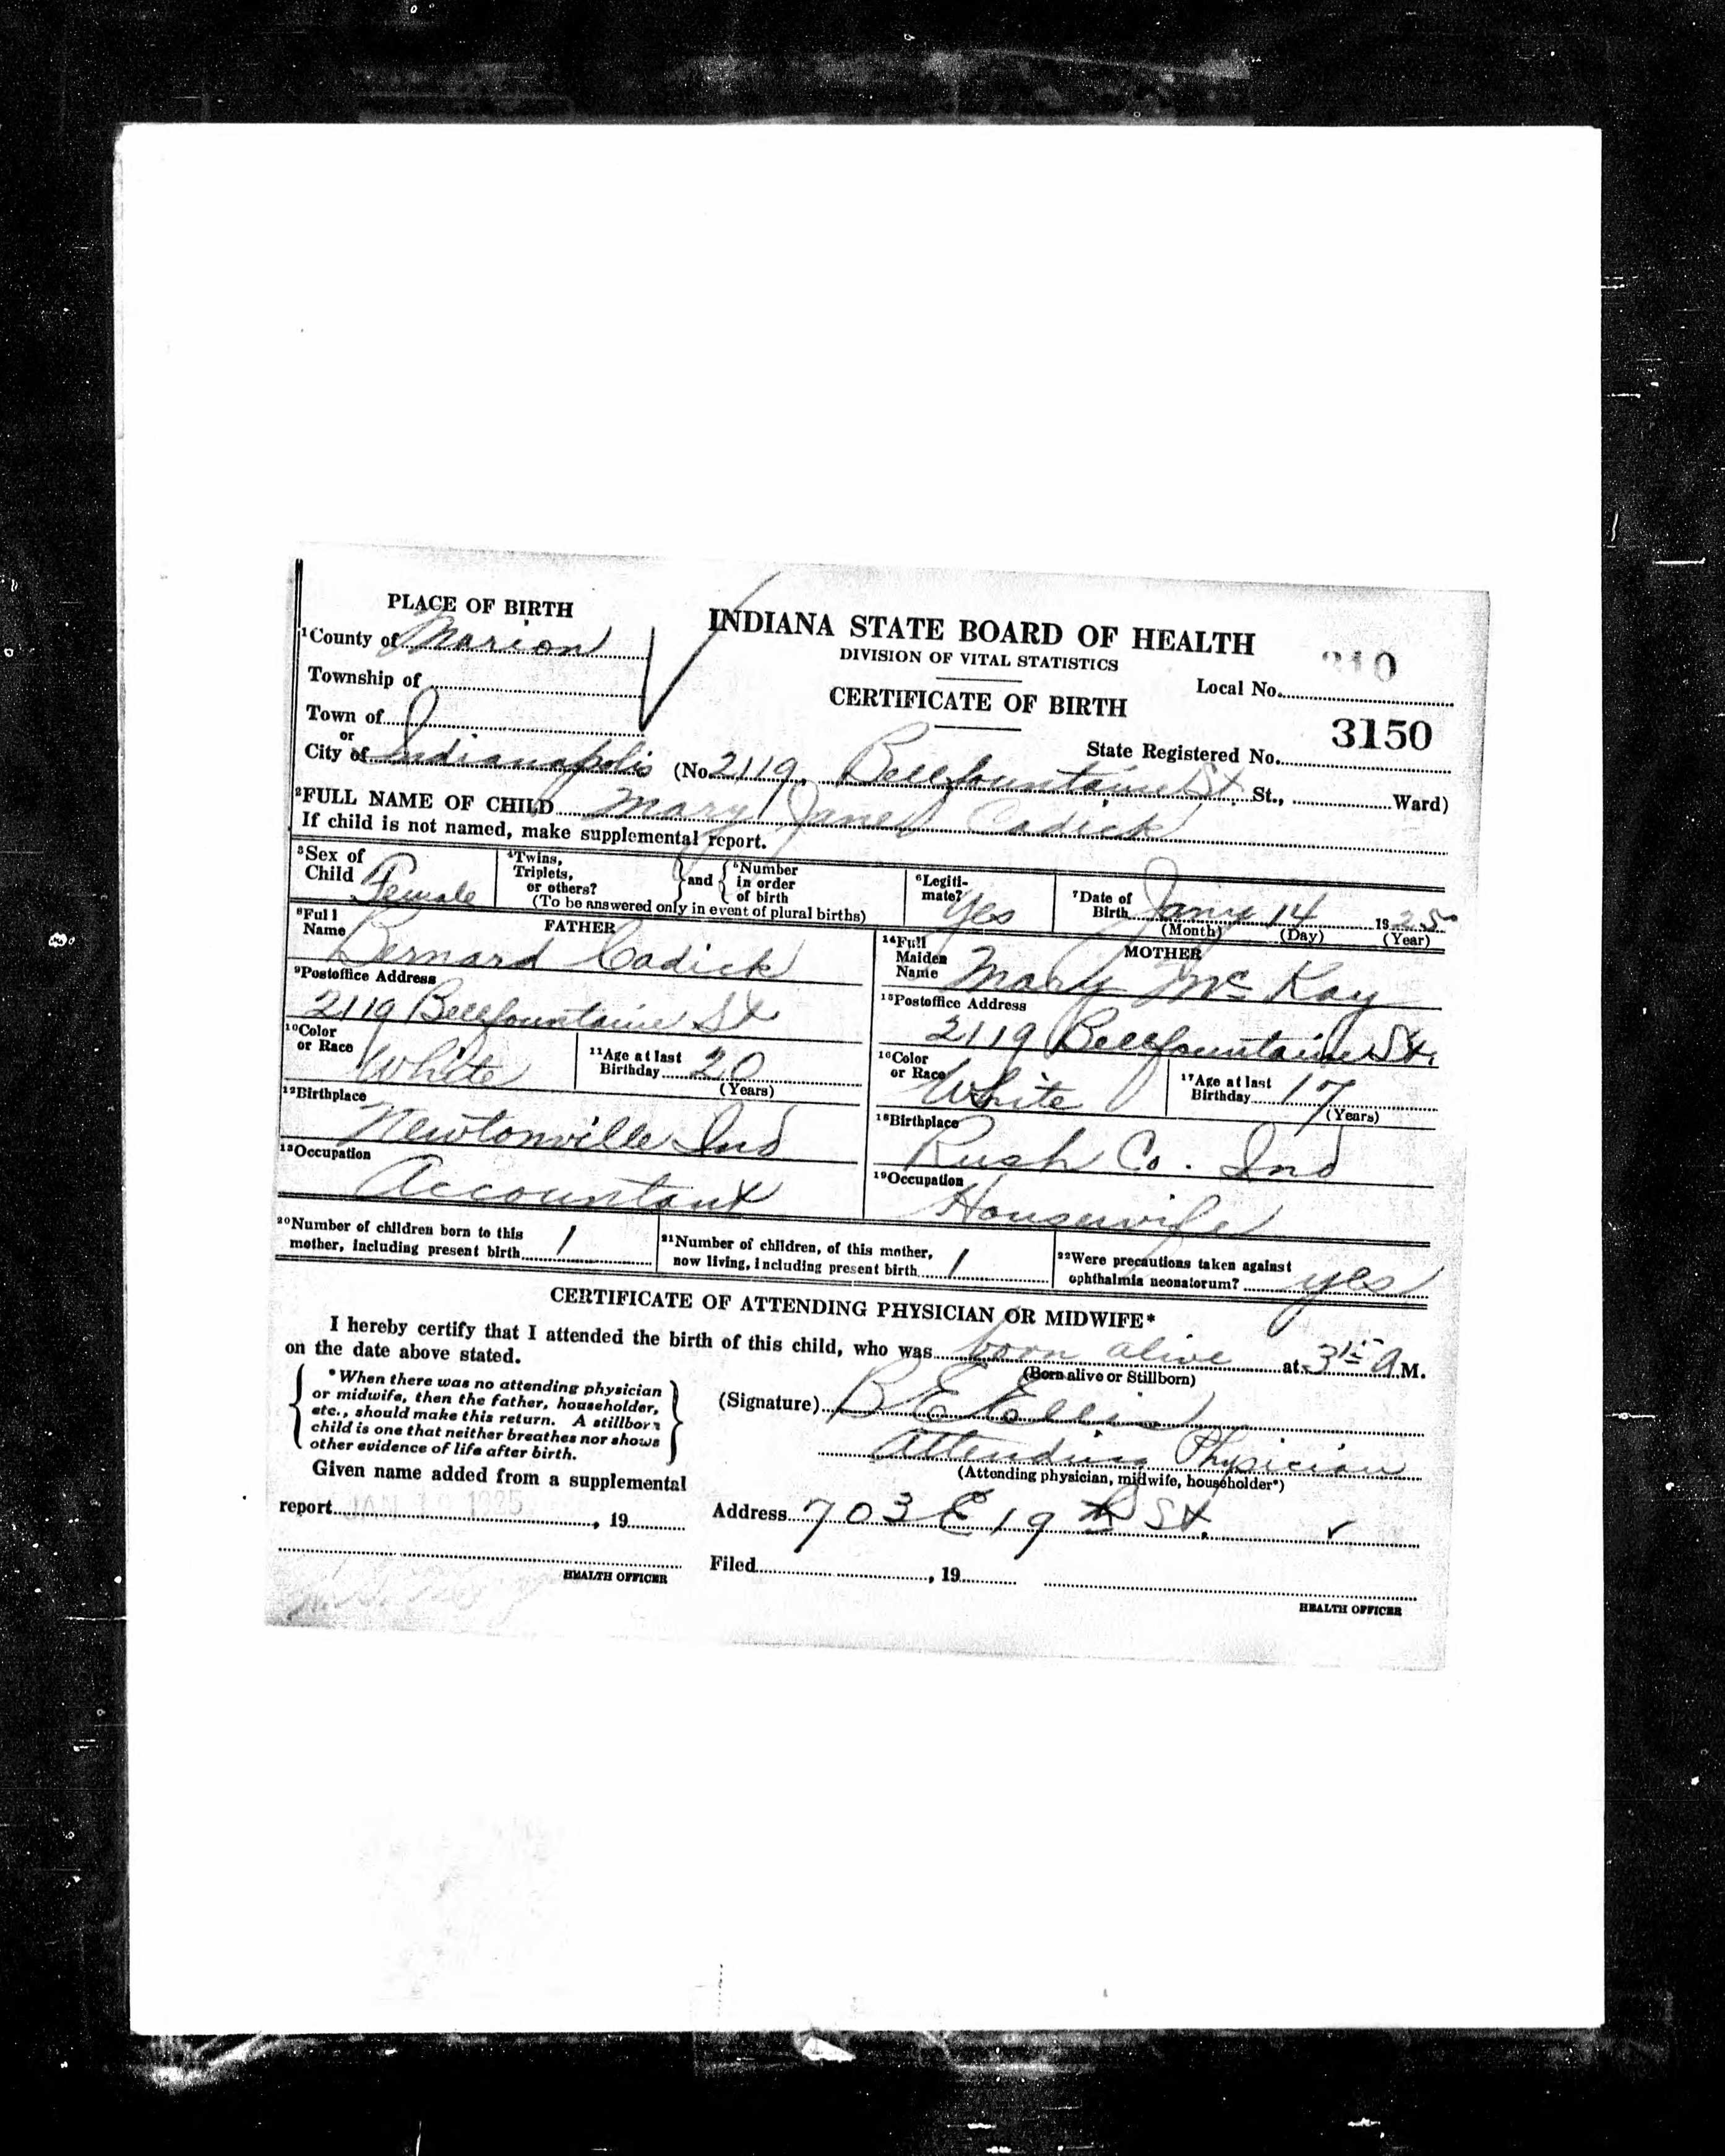 PLACE OF BIRTH
INDIANA STATE BOARD OF HEALTH
DIVISION OF VITAL STATISTICS
CERTIFICATE OF BIRTH
¹County of Marion
Township of
Town of
or
City of Indianapolis (No. 2119. Bellfountaine St. St., Ward)
Local No. 210
State Registered No. 3150
²FULL NAME OF CHILD Mary Jane Cadick
If child is not named, make supplemental report.
³Sex of Child Female
⁴Twins, Triplets, or others? and ⁵Number in order of birth
(To be answered only in event of plural births)
⁶Legitimate? Yes
⁷Date of Birth Jany 14 1925
(Month) (Day) (Year)
FATHER
⁸Full Name Bernard Cadick
⁹Postoffice Address
2119 Bellfountaine St
¹⁰Color or Race White
¹¹Age at last Birthday 20
(Years)
¹²Birthplace
Newtonville Ind
¹³Occupation
Accountant
MOTHER
¹⁴Full Maiden Name Mary Mc Kay
¹⁵Postoffice Address
2119 Bellfountaine St.
¹⁶Color or Race White
¹⁷Age at last Birthday 17
(Years)
¹⁸Birthplace
Rush Co. Ind
¹⁹Occupation
Housewife
²⁰Number of children born to this mother, including present birth 1
²¹Number of children, of this mother, now living, including present birth 1
²²Were precautions taken against ophthalmia neonatorum? yes
CERTIFICATE OF ATTENDING PHYSICIAN OR MIDWIFE*
I hereby certify that I attended the birth of this child, who was born alive at 3 15 A M.
(Born alive or Stillborn)
on the date above stated.
*When there was no attending physician
or midwife, then the father, householder,
etc., should make this return. A stillborn
child is one that neither breathes nor shows
other evidence of life after birth.
(Signature) B E Ellis
Attending Physician
(Attending physician, midwife, householder*)
Given name added from a supplemental
report JAN 1925, 19
HEALTH OFFICER
Address 703 E 19 th St.
Filed , 19
HEALTH OFFICER